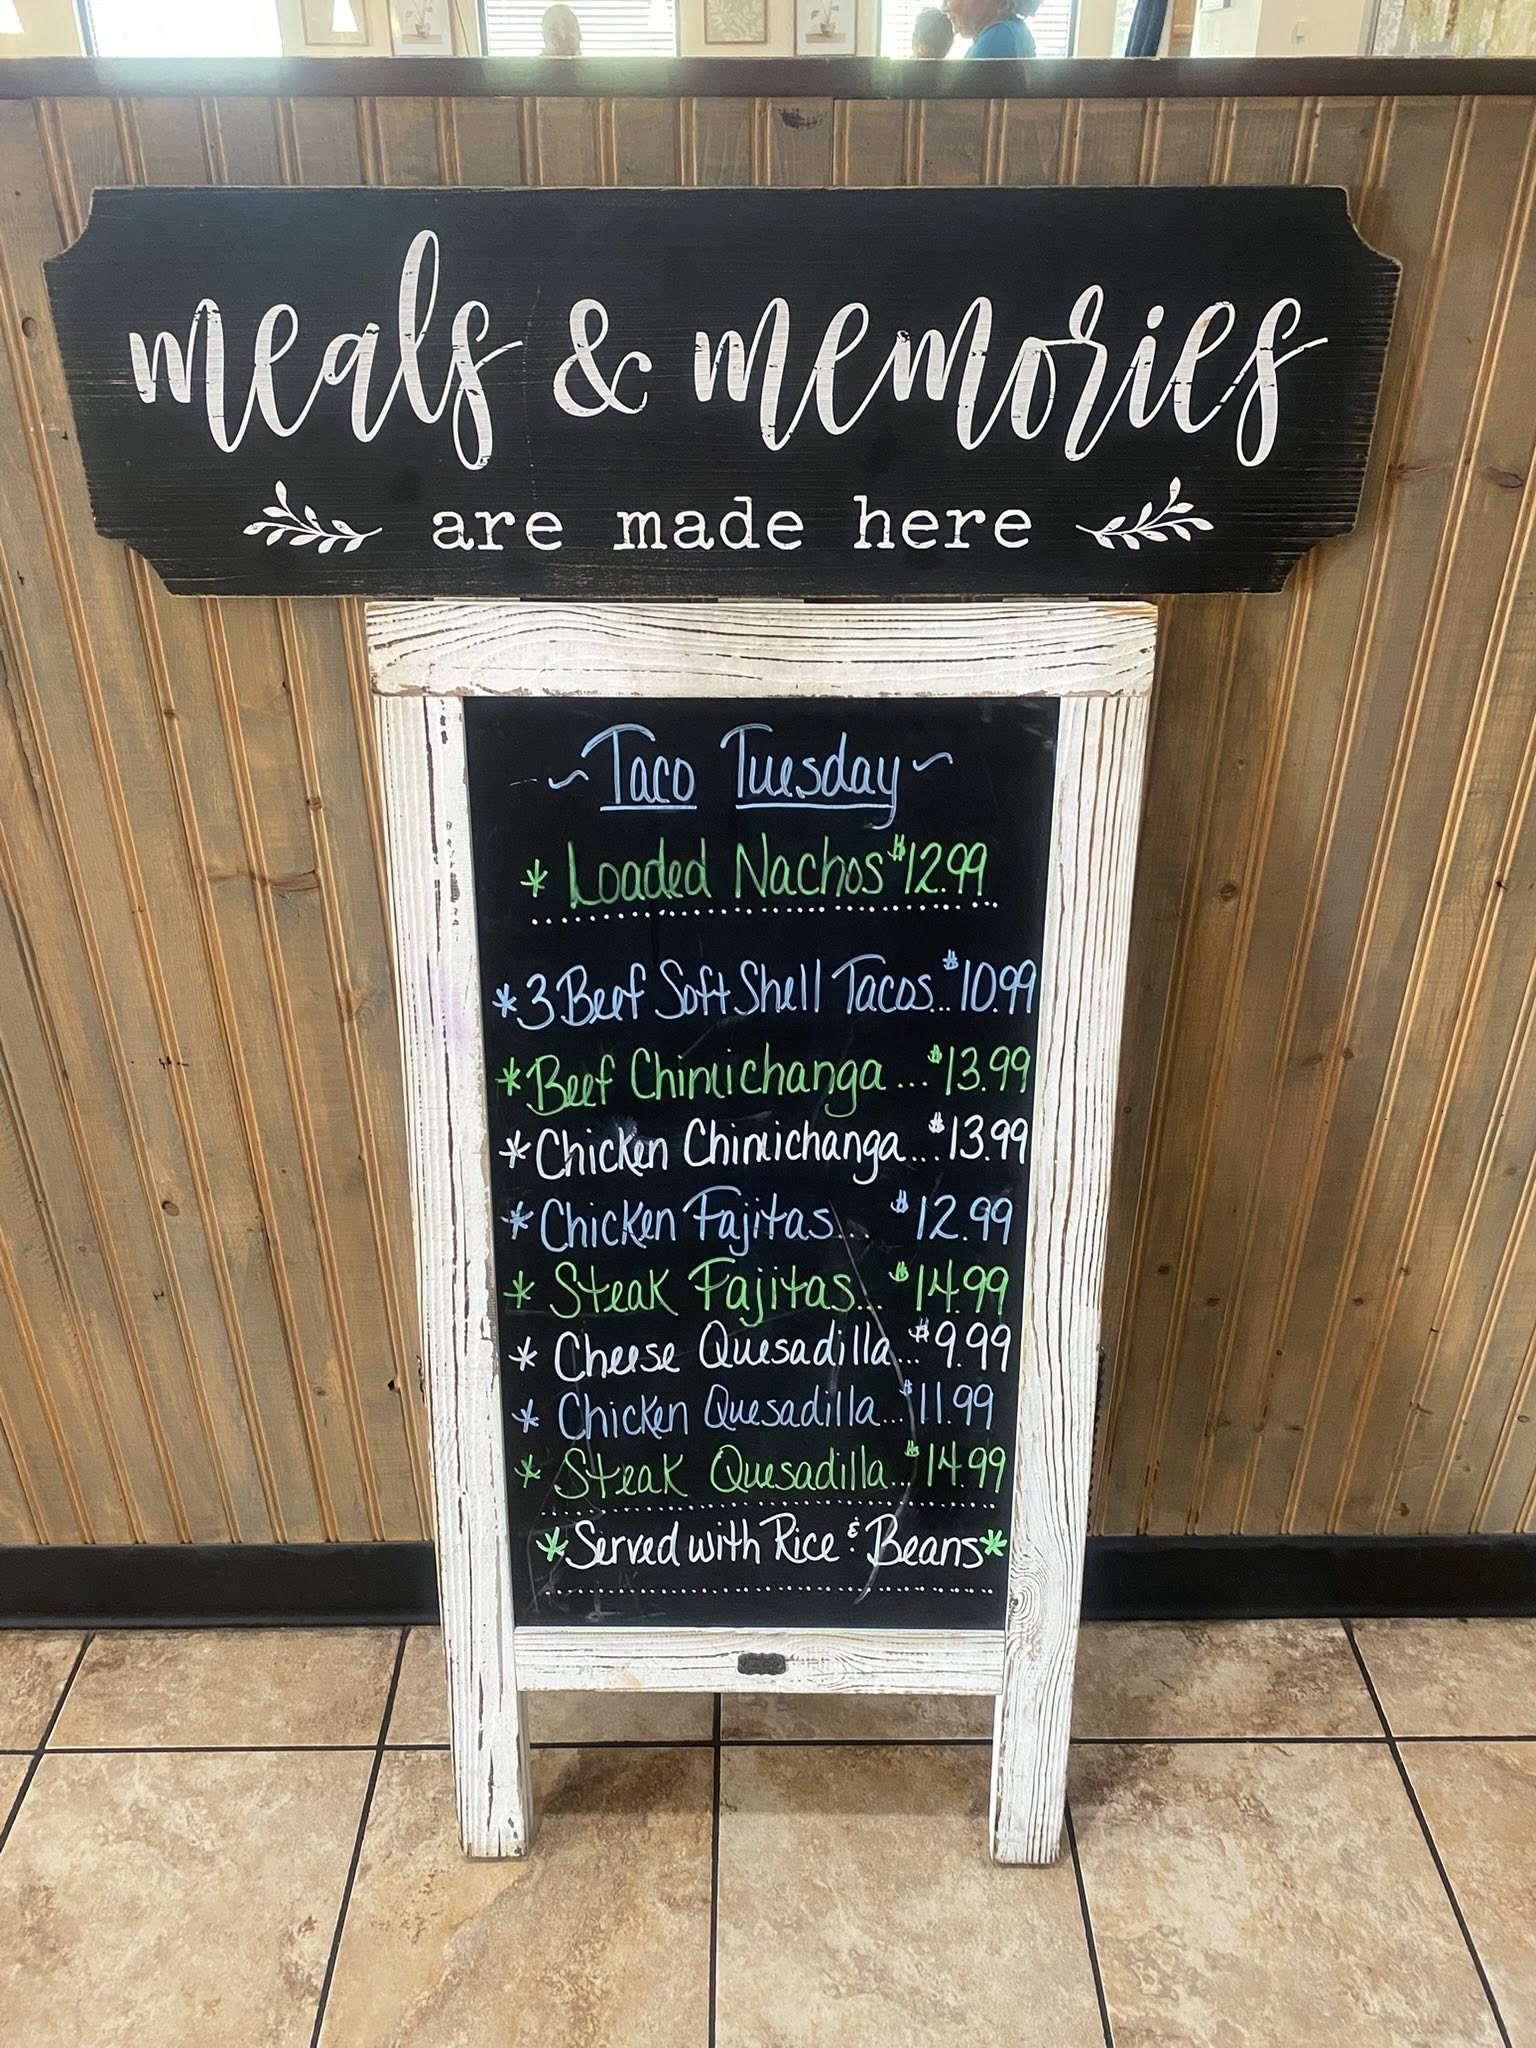 meals & memories
are made here
~ Taco Tuesday ~
* Loaded Nachos $12.99
* 3 Beef Soft Shell Tacos... $10.99
* Beef Chimichanga ... $13.99
* Chicken Chimichanga... $13.99
* Chicken Fajitas... $12.99
* Steak Fajitas... $14.99
* Cheese Quesadilla... $9.99
* Chicken Quesadilla... $11.99
* Steak Quesadilla... $14.99
* Served with Rice & Beans *